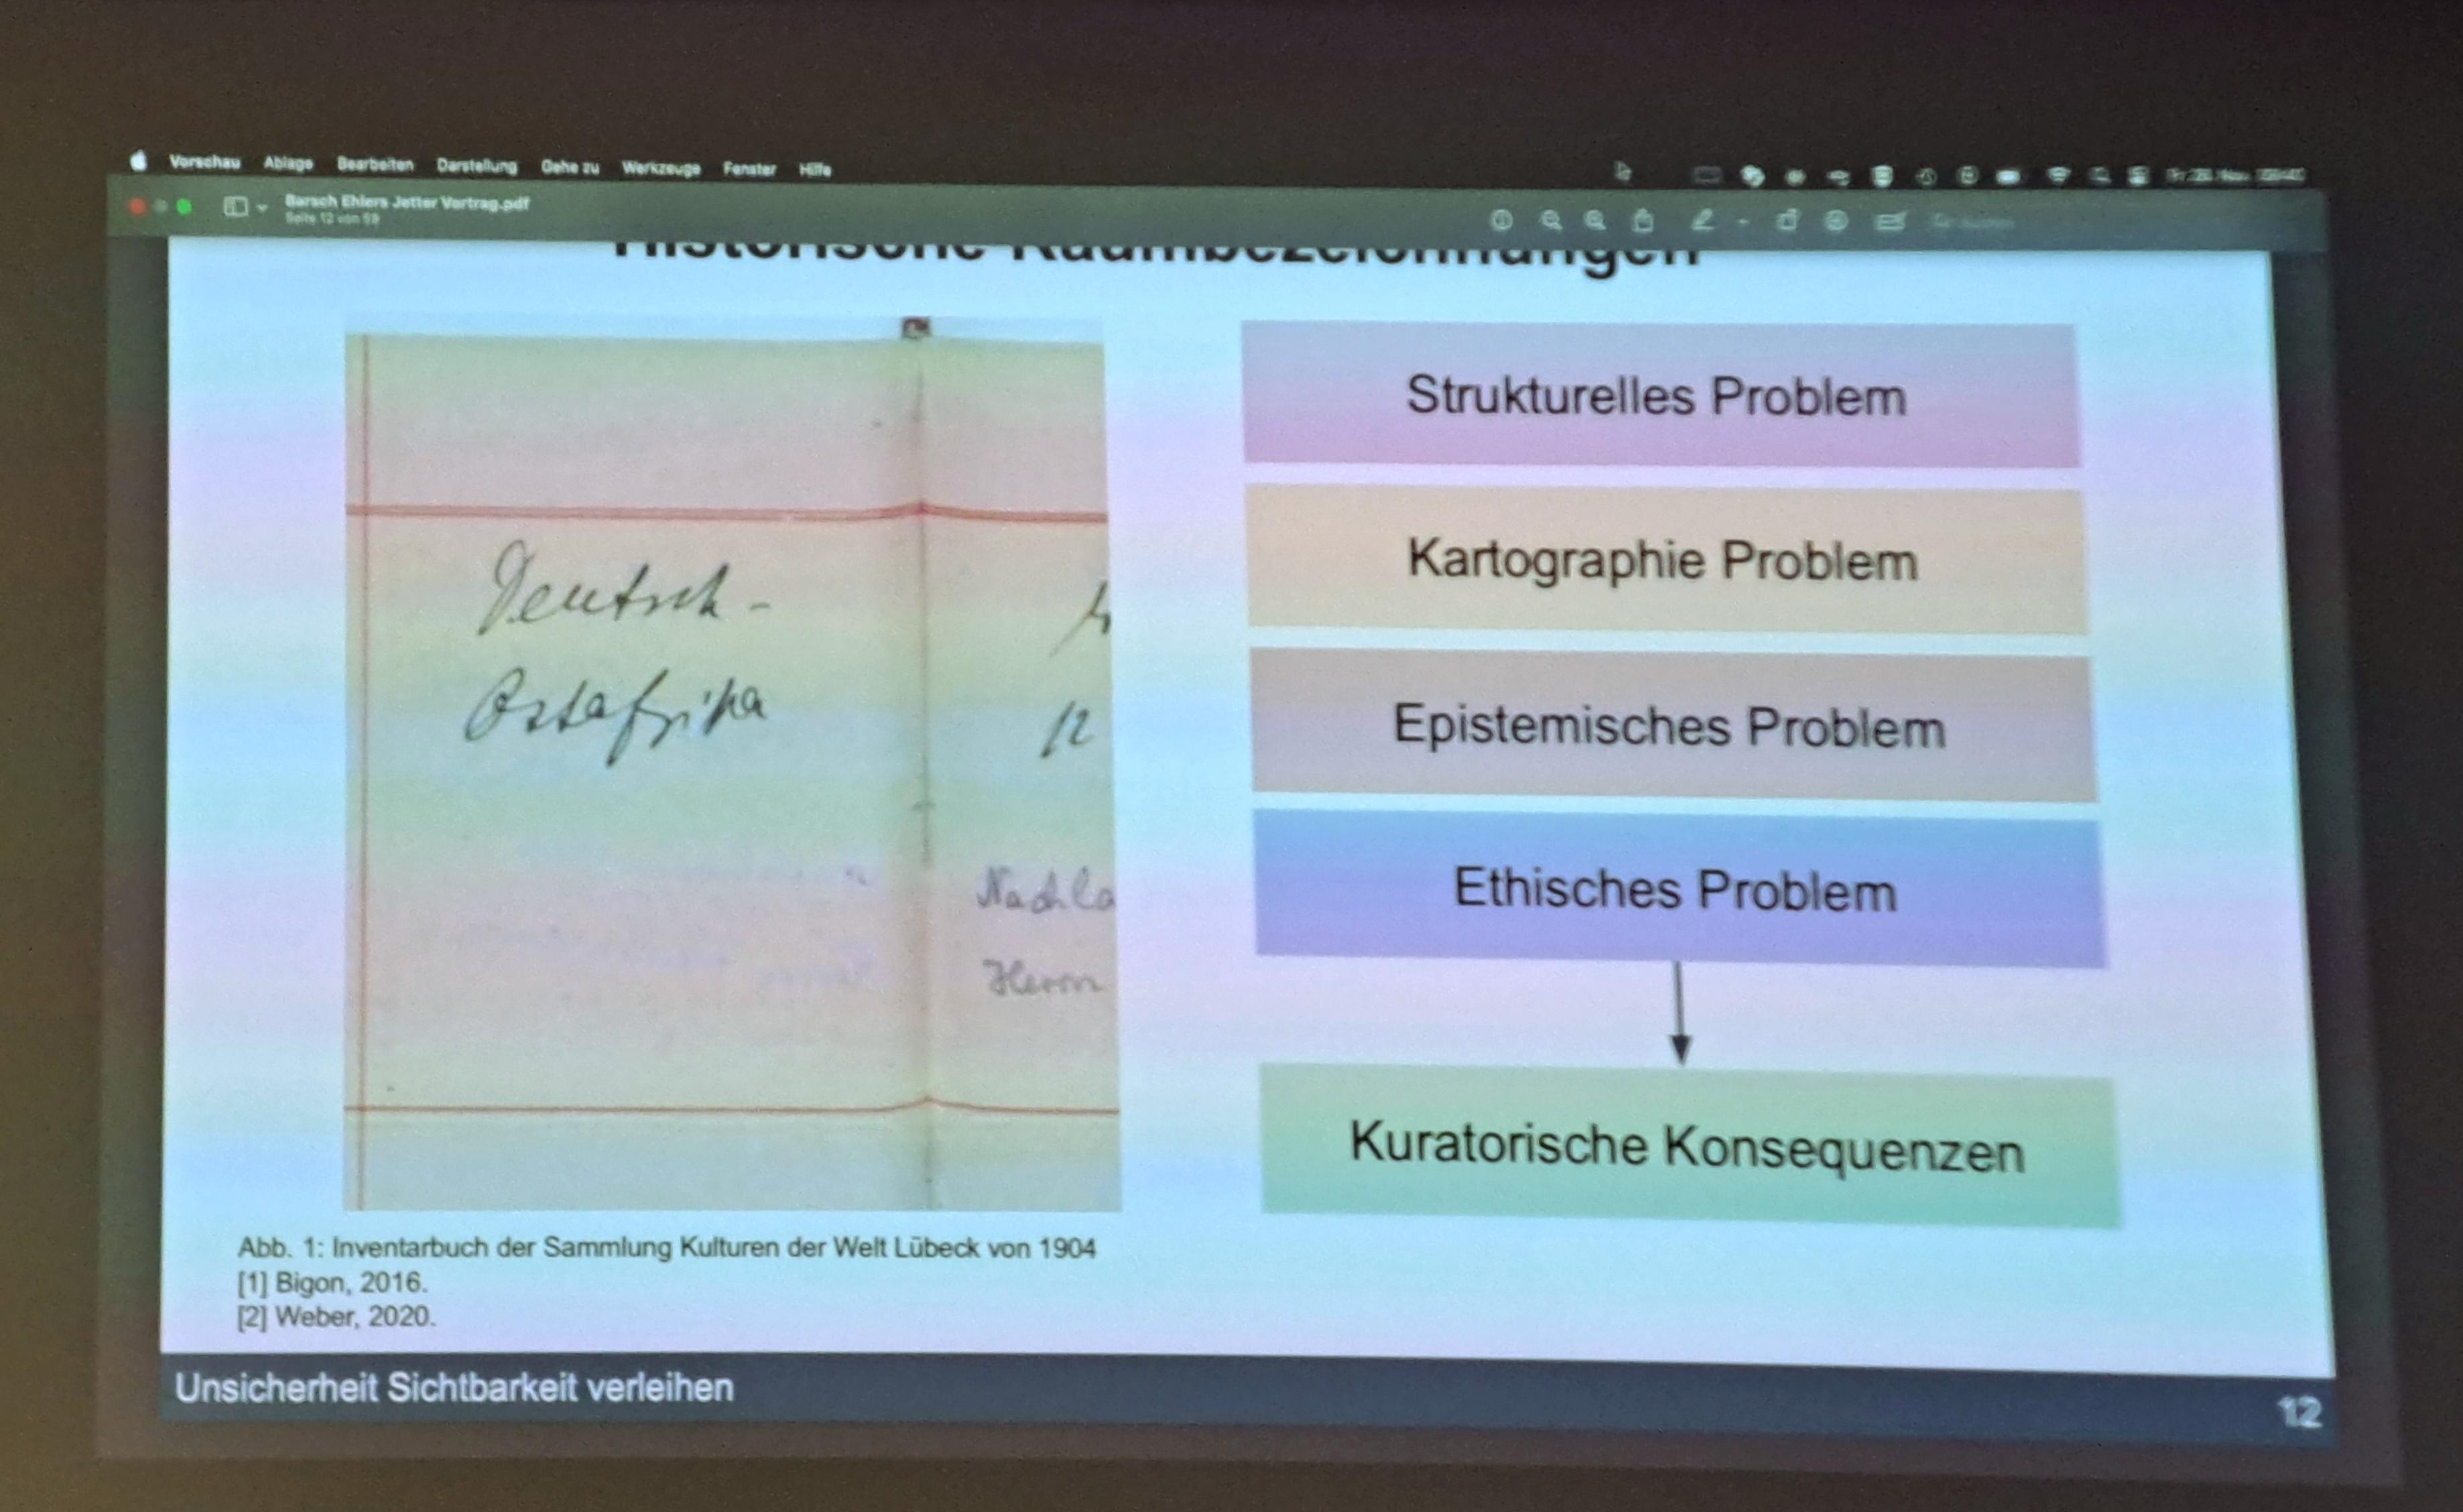 Vorschau Ablage Bearbeiten Darstellung Gehe zu Werkzeuge Fenster Hilfe
Barsch Ehlers Jetter Vortrag.pdf
Seite 12 von 59
Historische Raumbezeichnungen
Deutsch-
Ostafrika
12
Nachla
Herrn
Strukturelles Problem
Kartographie Problem
Epistemisches Problem
Ethisches Problem
Kuratorische Konsequenzen
Abb. 1: Inventarbuch der Sammlung Kulturen der Welt Lübeck von 1904
[1] Bigon, 2016.
[2] Weber, 2020.
Unsicherheit Sichtbarkeit verleihen
12